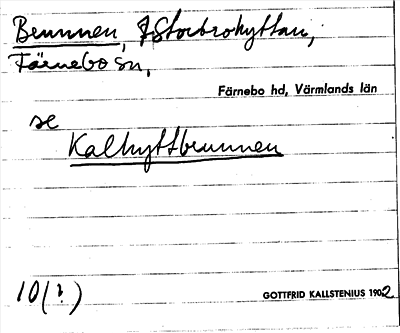 Brunnen, I Storbrohyttan,
Färnebo sn,
Färnebo hd, Värmlands län
se
Kalhyttbrunnen
10(?)
GOTTFRID KALLSTENIUS 1902